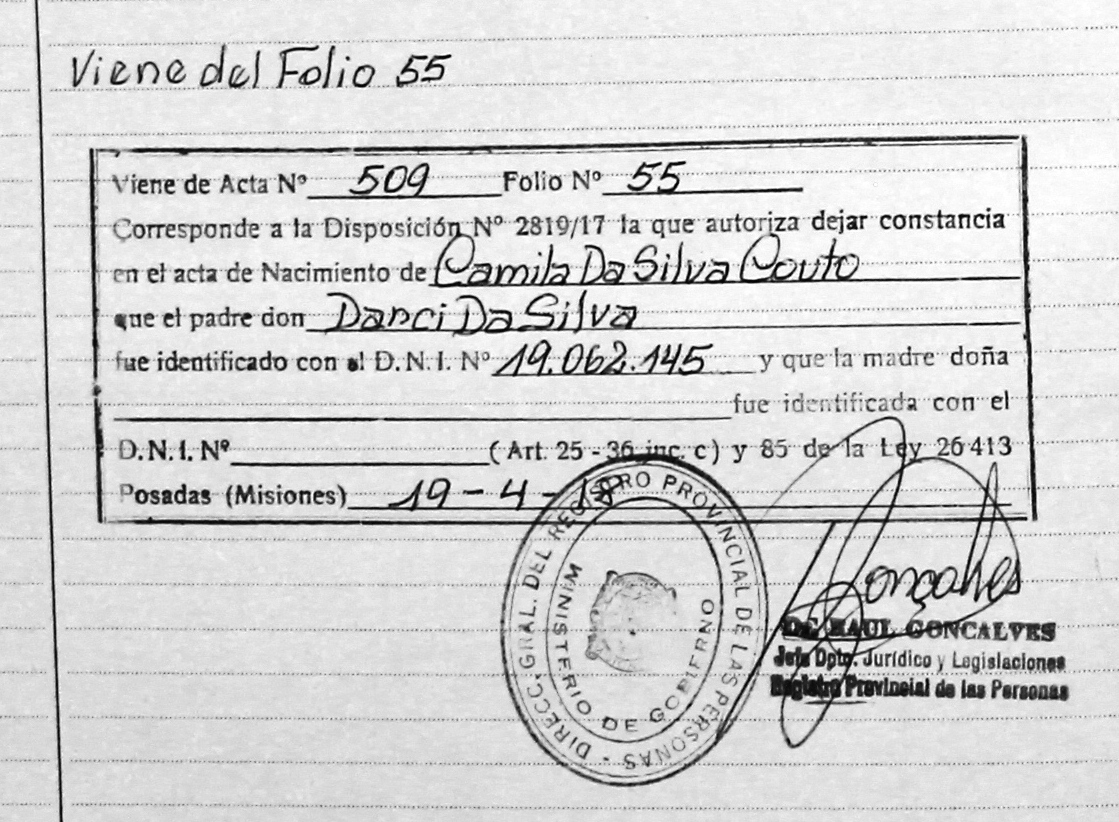 Viene del Folio 55
Viene de Acta Nº 509 Folio Nº 55
Corresponde a la Disposición Nº 2819/17 la que autoriza dejar constancia
en el acta de Nacimiento de Camila Da Silva Couto
que el padre don Darci Da Silva
fue identificado con el D.N.I. Nº 19.062.145 y que la madre doña
fue identificada con el
D.N.I. Nº ( Art. 25 - 36 inc. c) y 85 de la Ley 26413
Posadas (Misiones) 19 - 4 - 18
DIRECC. GRAL. DEL REGISTRO PROVINCIAL DE LAS PERSONAS -
MINISTERIO DE GOBIERNO
Goncalves
RAUL GONCALVES
Jefe Dpto. Jurídico y Legislaciones
Registro Provincial de las Personas